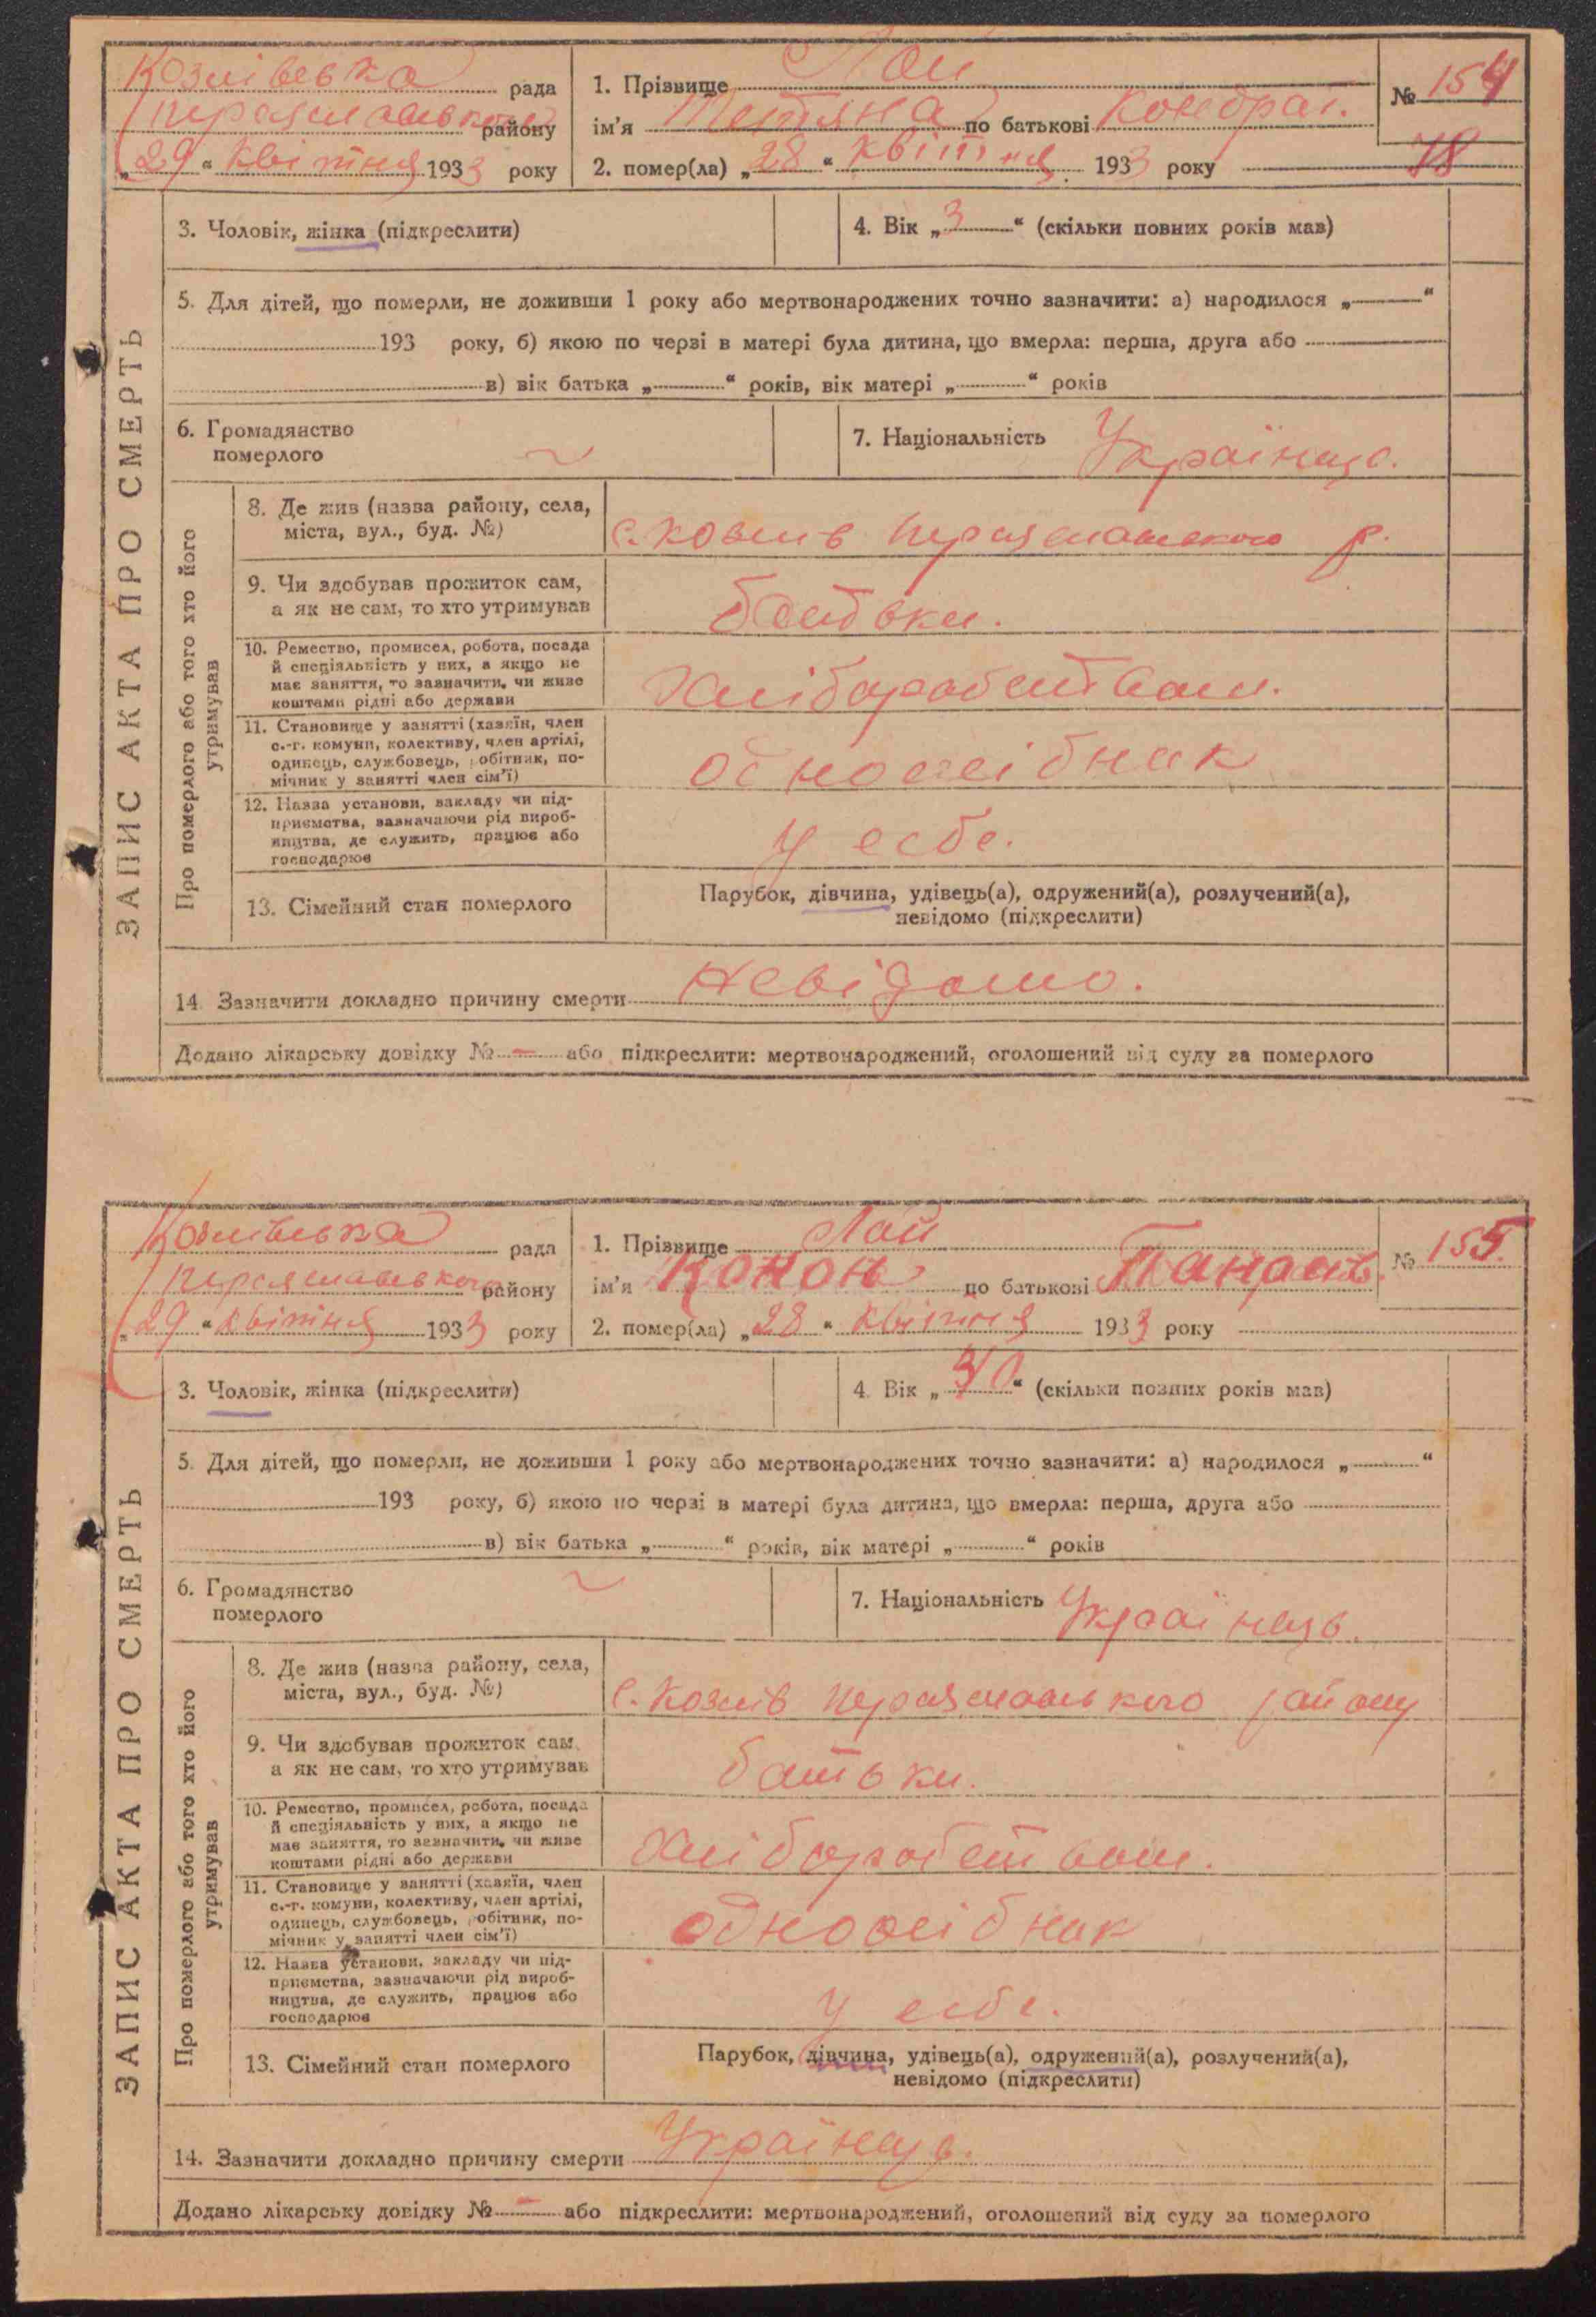 Козлівська рада
Переяславського району
„29“ квітня 1933 року
1. Прізвище Лой
ім’я Тетяна по батькові Кондрат.
2. помер(ла) „28“ квітня 1933 року
№ 154
78
3. Чоловік, жінка (підкреслити)
4. Вік „3“ (скільки повних років мав)
5. Для дітей, що померли, не доживши 1 року або мертвонароджених точно зазначити: а) народилося „—“
193 року, б) якою по черзі в матері була дитина, що вмерла: перша, друга або
в) вік батька „ “ років, вік матері „ “ років
6. Громадянство
померлого ~
7. Національність Українец.
ЗАПИС АКТА ПРО СМЕРТЬ
Про померлого або того хто його
утримував
8. Де жив (назва району, села,
міста, вул., буд. №)
с. Козлів Переяславського р.
9. Чи здобував прожиток сам,
а як не сам, то хто утримував
батьки.
10. Ремество, промисел, робота, посада
й спеціяльність у них, а якщо не
має заняття, то зазначити, чи живе
коштами рідні або держави
Хліборобством.
11. Становище у занятті (хазяїн, член
с.-г. комуни, колективу, член артілі,
одинець, службовець, робітник, по-
мічник у занятті член сім’ї)
одноосібник
12. Назва установи, закладу чи під-
приємства, зазначаючи рід вироб-
ництва, де служить, працює або
господарює
у себе.
13. Сімейний стан померлого
Парубок, дівчина, удівець(а), одружений(а), розлучений(а),
невідомо (підкреслити)
14. Зазначити докладно причину смерти Невідомо.
Додано лікарську довідку № — або підкреслити: мертвонароджений, оголошений від суду за померлого
Козлівська рада
Переяславського району
„29“ квітня 1933 року
1. Прізвище Лой
ім’я Конон по батькові Панасів.
2. помер(ла) „28“ квітня 1933 року
№ 155
3. Чоловік, жінка (підкреслити)
4. Вік „ “ (скільки повних років мав)
5. Для дітей, що померли, не доживши 1 року або мертвонароджених точно зазначити: а) народилося „ “
193 року, б) якою по черзі в матері була дитина, що вмерла: перша, друга або
в) вік батька „ “ років, вік матері „ “ років
6. Громадянство
померлого ~
7. Національність Українець.
ЗАПИС АКТА ПРО СМЕРТЬ
Про померлого або того хто його
утримував
8. Де жив (назва району, села,
міста, вул., буд. №)
с. Козлів Переяславського району
9. Чи здобував прожиток сам,
а як не сам, то хто утримував
батьки.
10. Ремество, промисел, робота, посада
й спеціяльність у них, а якщо не
має заняття, то зазначити, чи живе
коштами рідні або держави
Хліборобством.
11. Становище у занятті (хазяїн, член
с.-г. комуни, колективу, член артілі,
одинець, службовець, робітник, по-
мічник у занятті член сім’ї)
одноосібник
12. Назва установи, закладу чи під-
приємства, зазначаючи рід вироб-
ництва, де служить, працює або
господарює
у себе.
13. Сімейний стан померлого
Парубок, дівчина, удівець(а), одружений(а), розлучений(а),
невідомо (підкреслити)
14. Зазначити докладно причину смерти Українець.
Додано лікарську довідку № — або підкреслити: мертвонароджений, оголошений від суду за померлого